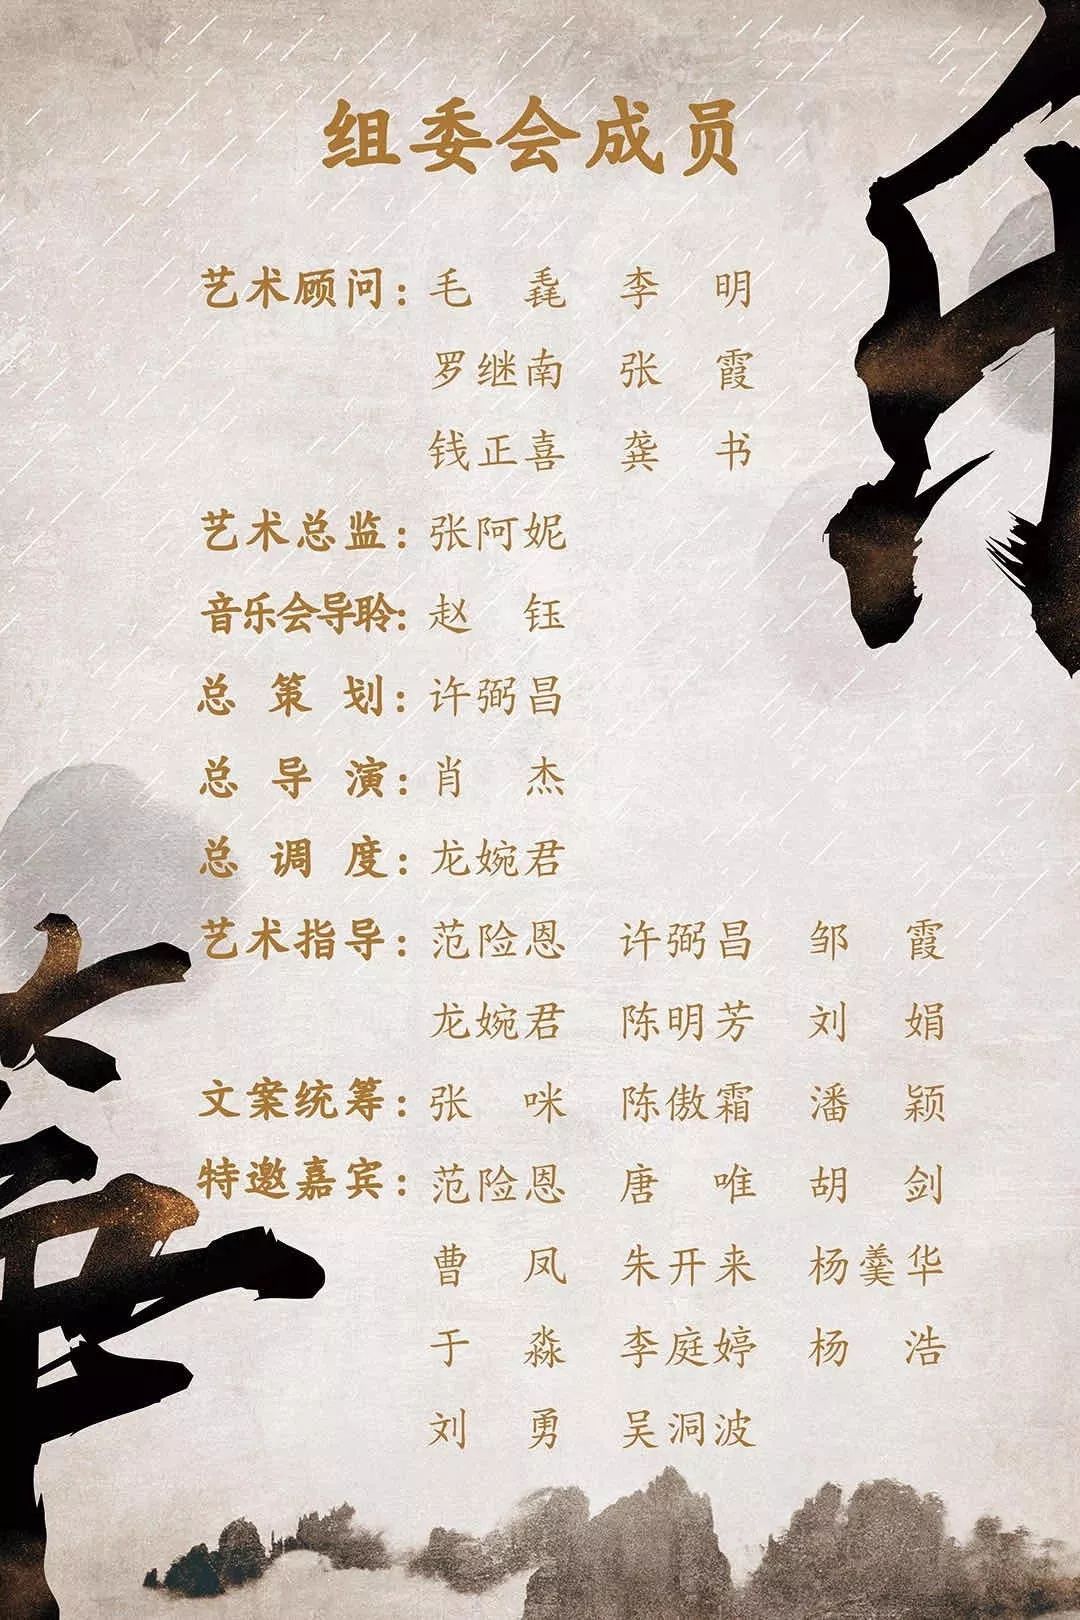 组委会成员
艺术顾问：毛 毳 李 明
罗继南 张 霞
钱正喜 龚 书
艺术总监：张阿妮
音乐会导聆：赵 钰
总 策 划：许弼昌
总 导 演：肖 杰
总 调 度：龙婉君
艺术指导：范险恩 许弼昌 邹 霞
龙婉君 陈明芳 刘 娟
文案统筹：张 咪 陈傲霜 潘 颖
特邀嘉宾：范险恩 唐 唯 胡 剑
曹 凤 朱开来 杨羹华
于 淼 李庭婷 杨 浩
刘 勇 吴洞波